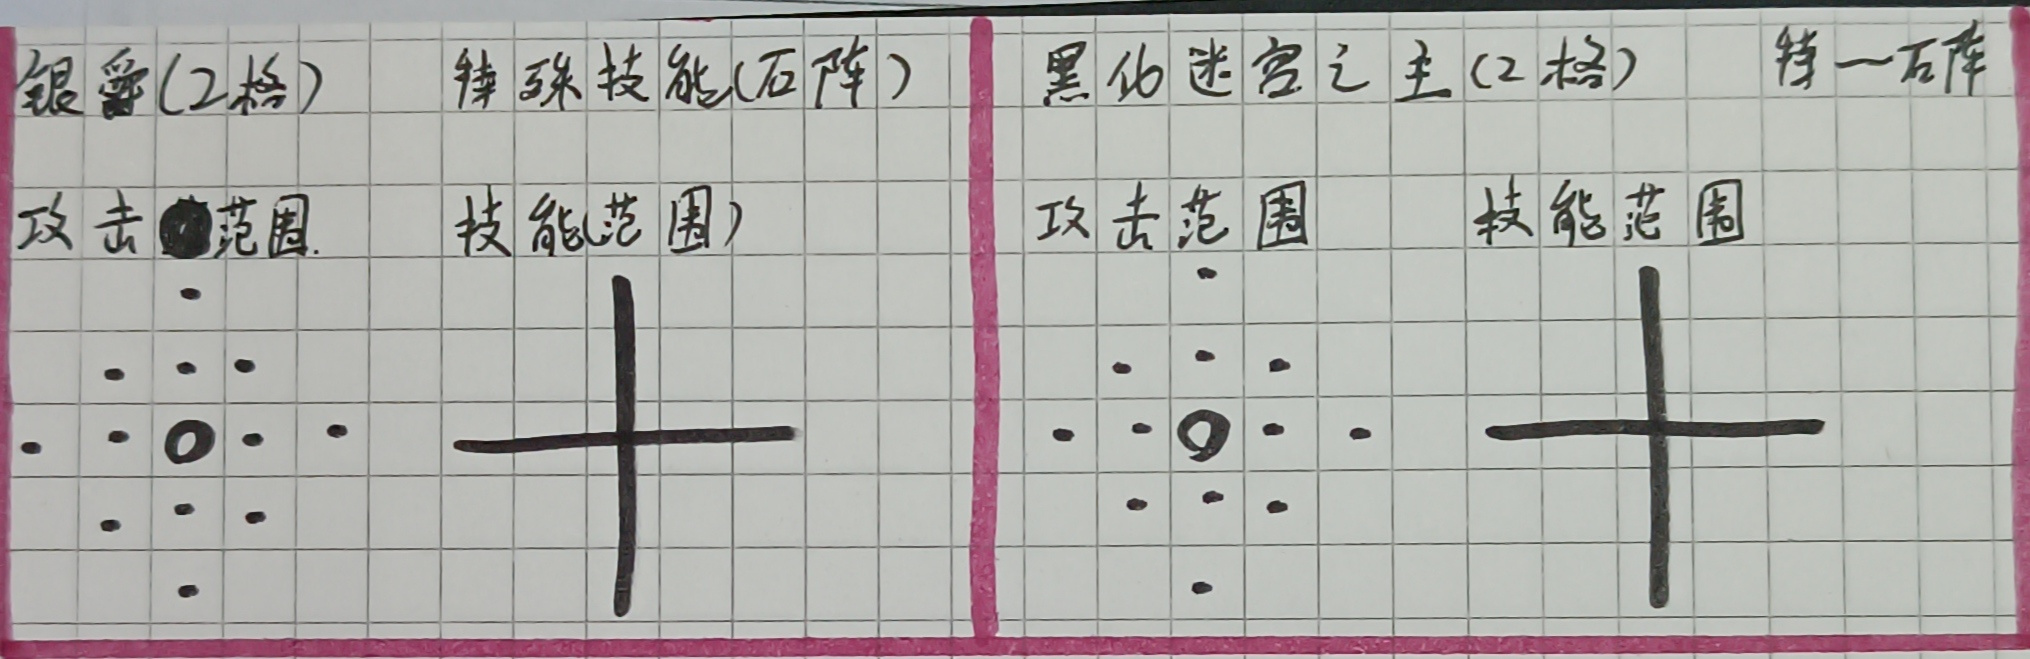 银爵(2格) 特殊技能(石阵)
攻击范围. 技能(范围)
黑化迷宫之主(2格) 特一石阵
攻击范围 技能范围